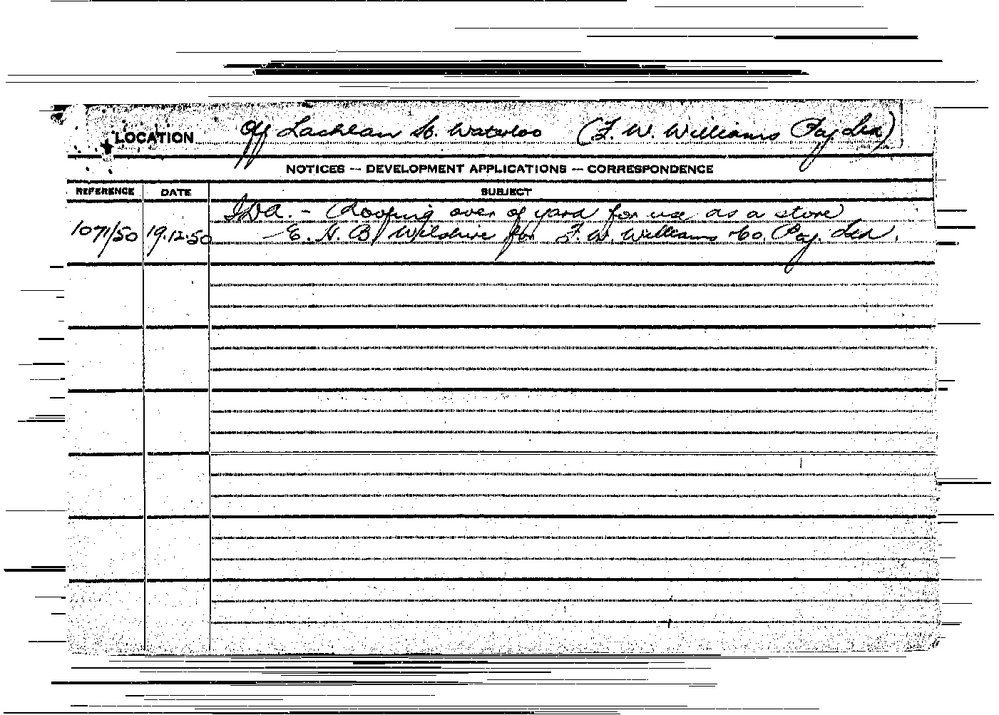 LOCATION Off Lachlan St. Waterloo (F. W. Williams Pty Ltd)
NOTICES -- DEVELOPMENT APPLICATIONS -- CORRESPONDENCE
REFERENCE DATE SUBJECT
I.D.A. - Roofing over of yard for use as a store
1071/50 19.12.50 - E. H. B. Wilshire for F. W. Williams Co. Pty. Ltd.